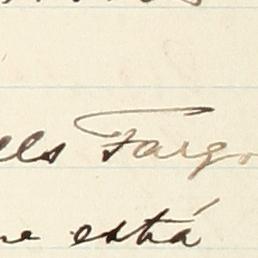 ells Fargo
ne está